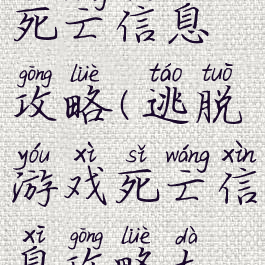 死亡信息
gōng lüè táo tuō
攻略(逃脱
yóu xì sǐ wáng xìn
游戏死亡信
xī gōng lüè dà
息攻略大